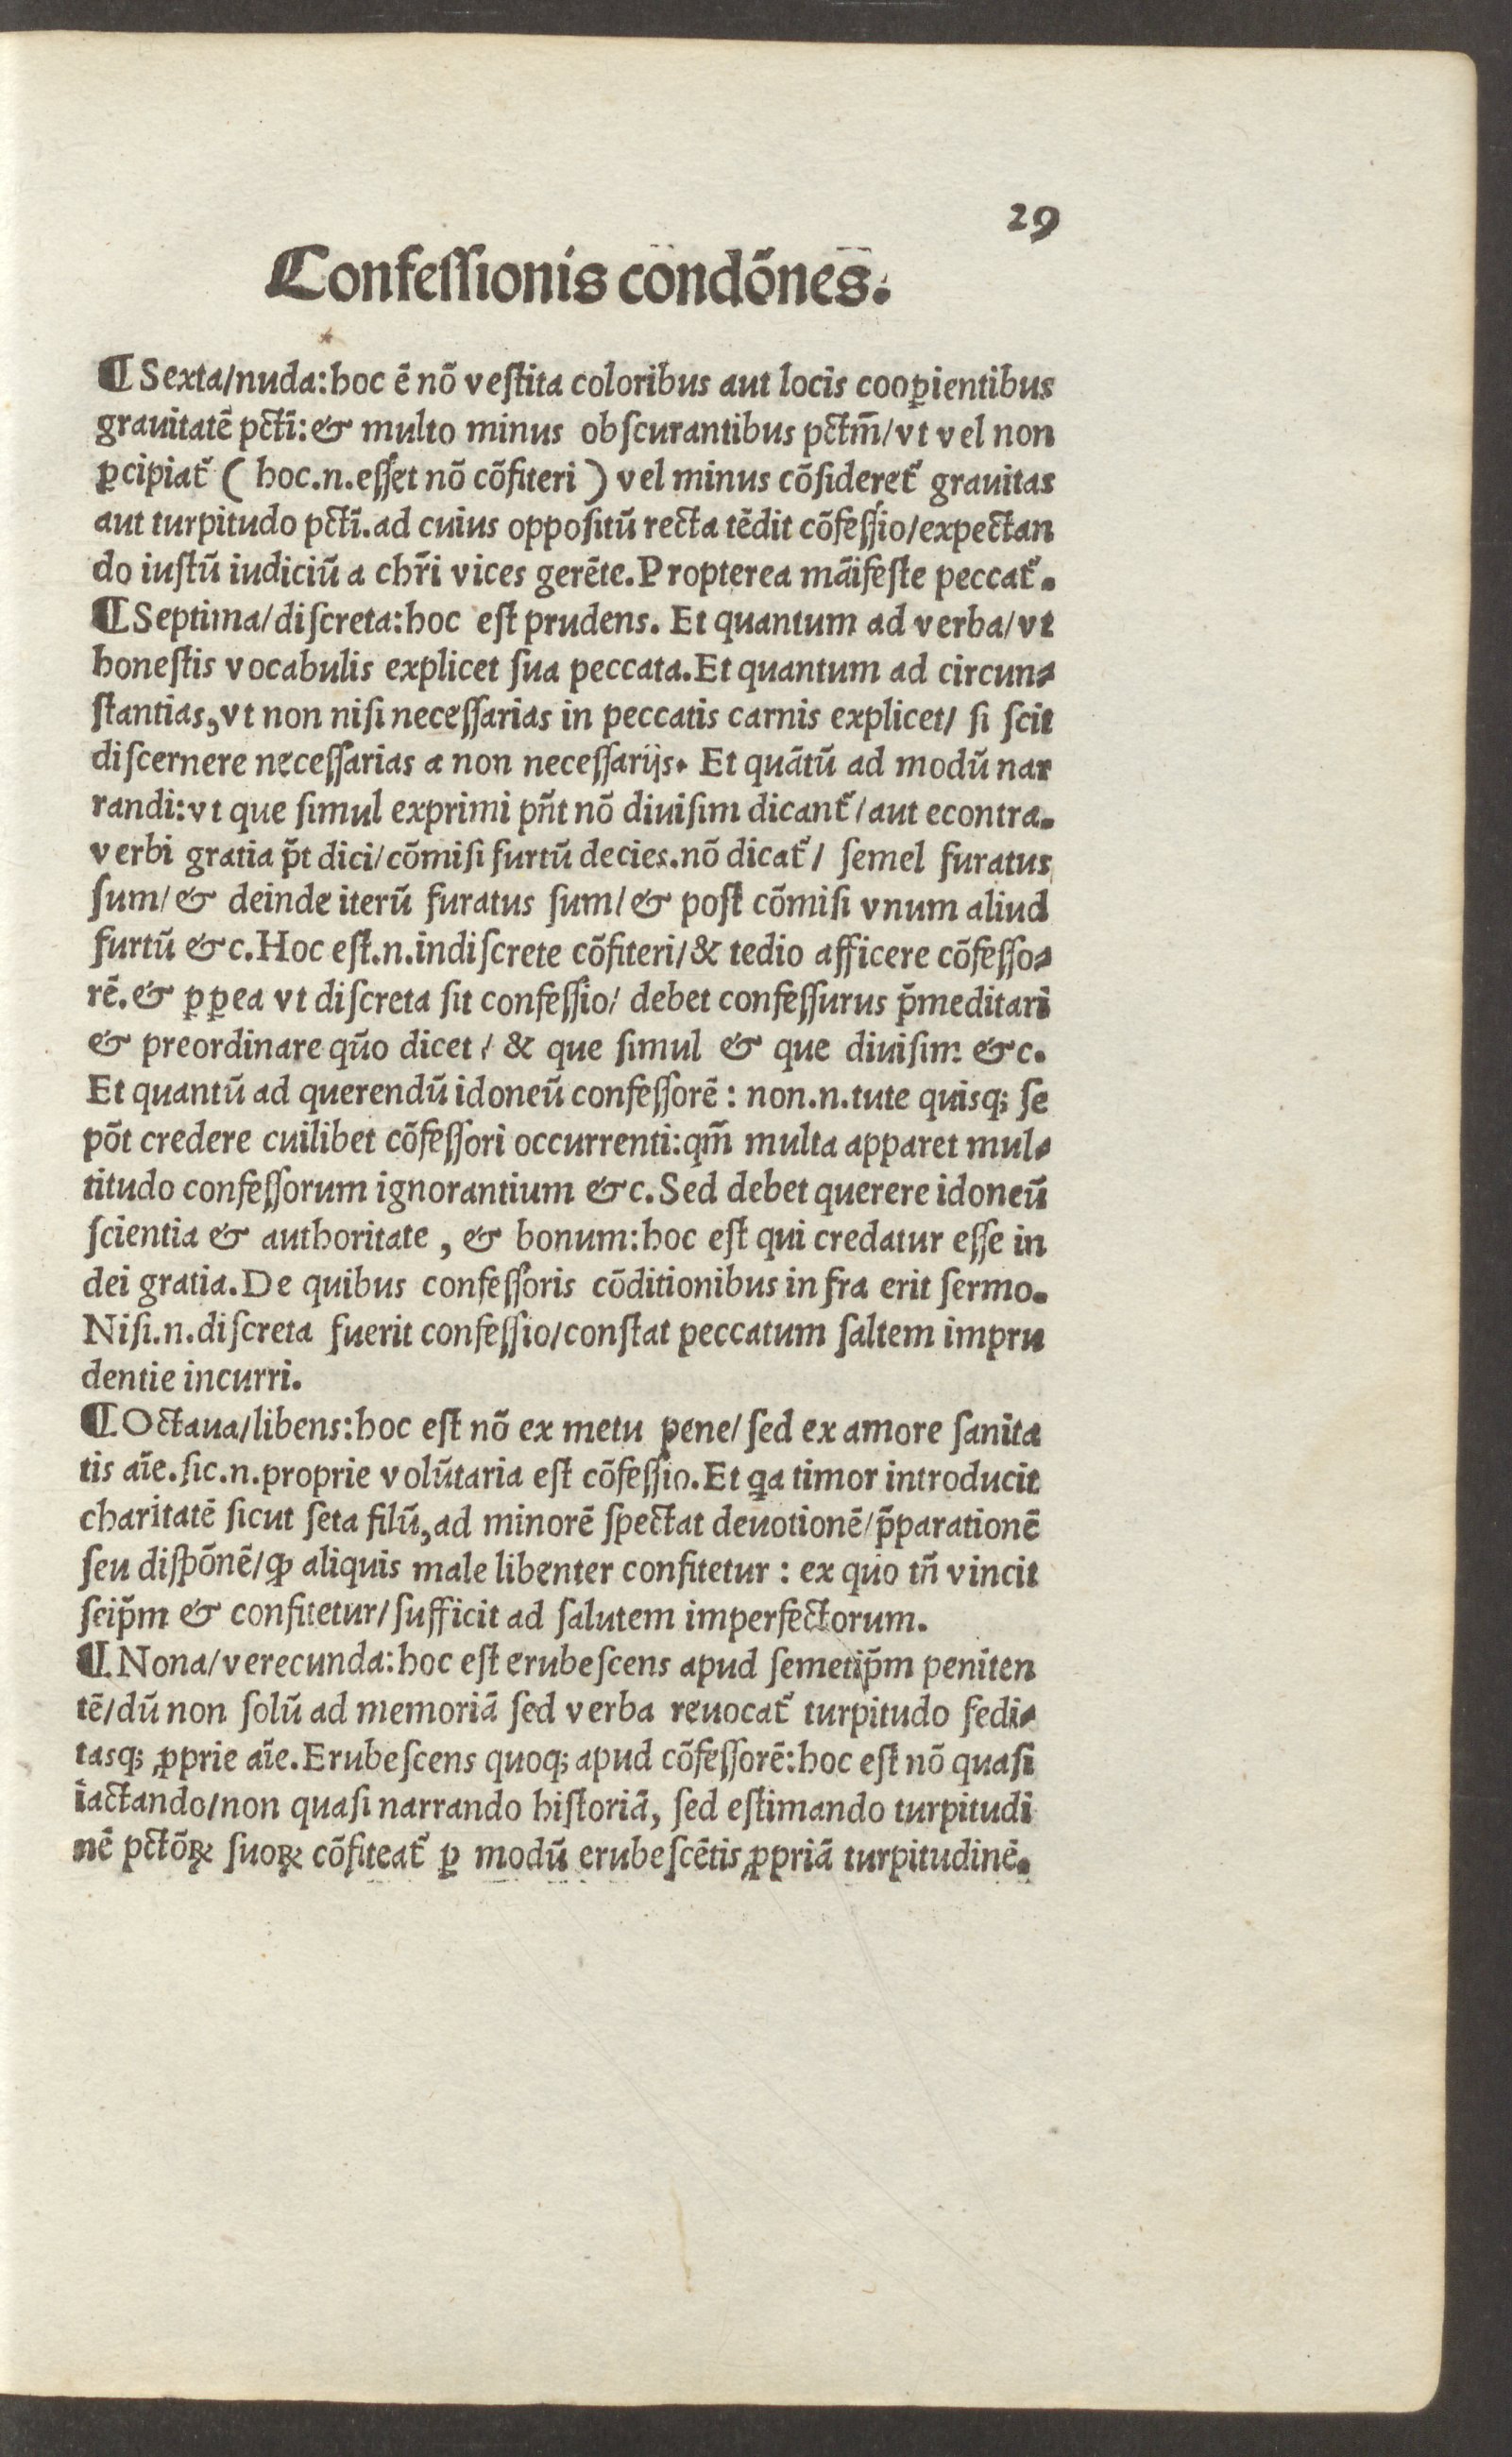 29
Confeſſionis condōnes.
¶ Sexta/nuda:hoc ē nō veſtita coloribus aut locis cooꝑientibus
grauitatē pctī:& multo minus obſcurantibus pctm̄/vt vel non
ꝑcipiat᷑ (hoc.n.eſſet nō cōfiteri) vel minus cōſideret᷑ grauitas
aut turpitudo pctī.ad cuius oppoſitū recta tēdit cōfeſſio/expectan
do iuſtū iudiciū a chr̄i vices gerēte.Propterea māifeſte peccat᷑.
¶ Septima/diſcreta:hoc eſt prudens. Et quantum ad verba/vt
honeſtis vocabulis explicet ſua peccata.Et quantum ad circun⸗
ſtantias,vt non niſi neceſſarias in peccatis carnis explicet/ ſi ſcit
diſcernere neceſſarias a non neceſſarijs. Et quātū ad modū nar
randi:vt que ſimul exprimi pn̄t nō diuiſim dicant᷑/aut econtra.
verbi gratia p̄t dici/cōmiſi furtū decies.nō dicat᷑/ ſemel furatus
ſum/& deinde iterū furatus ſum/& poſt cōmiſi vnum aliud
furtū &c.Hoc eſt.n.indiſcrete cōfiteri/& tedio afficere cōfeſſo⸗
rē.& ꝓꝑea vt diſcreta ſit confeſſio/ debet confeſſurus p̄meditari
& preordinare quō dicet/ & que ſimul & que diuiſim &c.
Et quantū ad querendū idoneū confeſſorē: non.n.tute quisqꝫ ſe
pōt credere cuilibet cōfeſſori occurrenti:qm̄ multa apparet mul⸗
titudo confeſſorum ignorantium &c.Sed debet querere idoneū
ſcientia & authoritate, & bonum:hoc eſt qui credatur eſſe in
dei gratia.De quibus confeſſoris cōditionibus infra erit ſermo.
Niſi.n.diſcreta fuerit confeſſio/conſtat peccatum ſaltem impru
dentie incurri.
¶ Octaua/libens:hoc eſt nō ex metu pene/ſed ex amore ſanita
tis aīe.ſic.n.proprie volūtaria eſt cōfeſſio.Et ꝗa timor introducit
charitatē ſicut ſeta filū,ad minorē ſpectat deuotionē/p̄parationē
ſeu diſpōnē/ꝙ aliquis male libenter confitetur: ex quo tn̄ vincit
ſeip̄m & confitetur/ſufficit ad ſalutem imperfectorum.
¶ Nona/verecunda:hoc eſt erubeſcens apud ſemetip̄m peniten
tē/dū non ſolū ad memoriā ſed verba reuocat᷑ turpitudo fedi⸗
tasqꝫ ꝓprie aīe.Erubeſcens quoqꝫ apud cōfeſſorē:hoc eſt nō quaſi
iactando/non quaſi narrando hiſtoriā, ſed eſtimando turpitudi
nē pctōꝝ ſuoꝝ cōfiteat᷑ ꝑ modū erubeſcētis ꝓpriā turpitudinē.